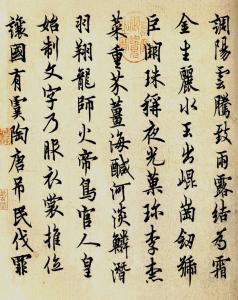 調陽雲騰致雨露結為霜
金生麗水玉出崐崗劒號
巨闕珠稱夜光菓珎李柰
菜重芥薑海醎河淡鱗潛
羽翔龍師火帝鳥官人皇
始制文字乃服衣裳推位
讓國有虞陶唐吊民伐罪